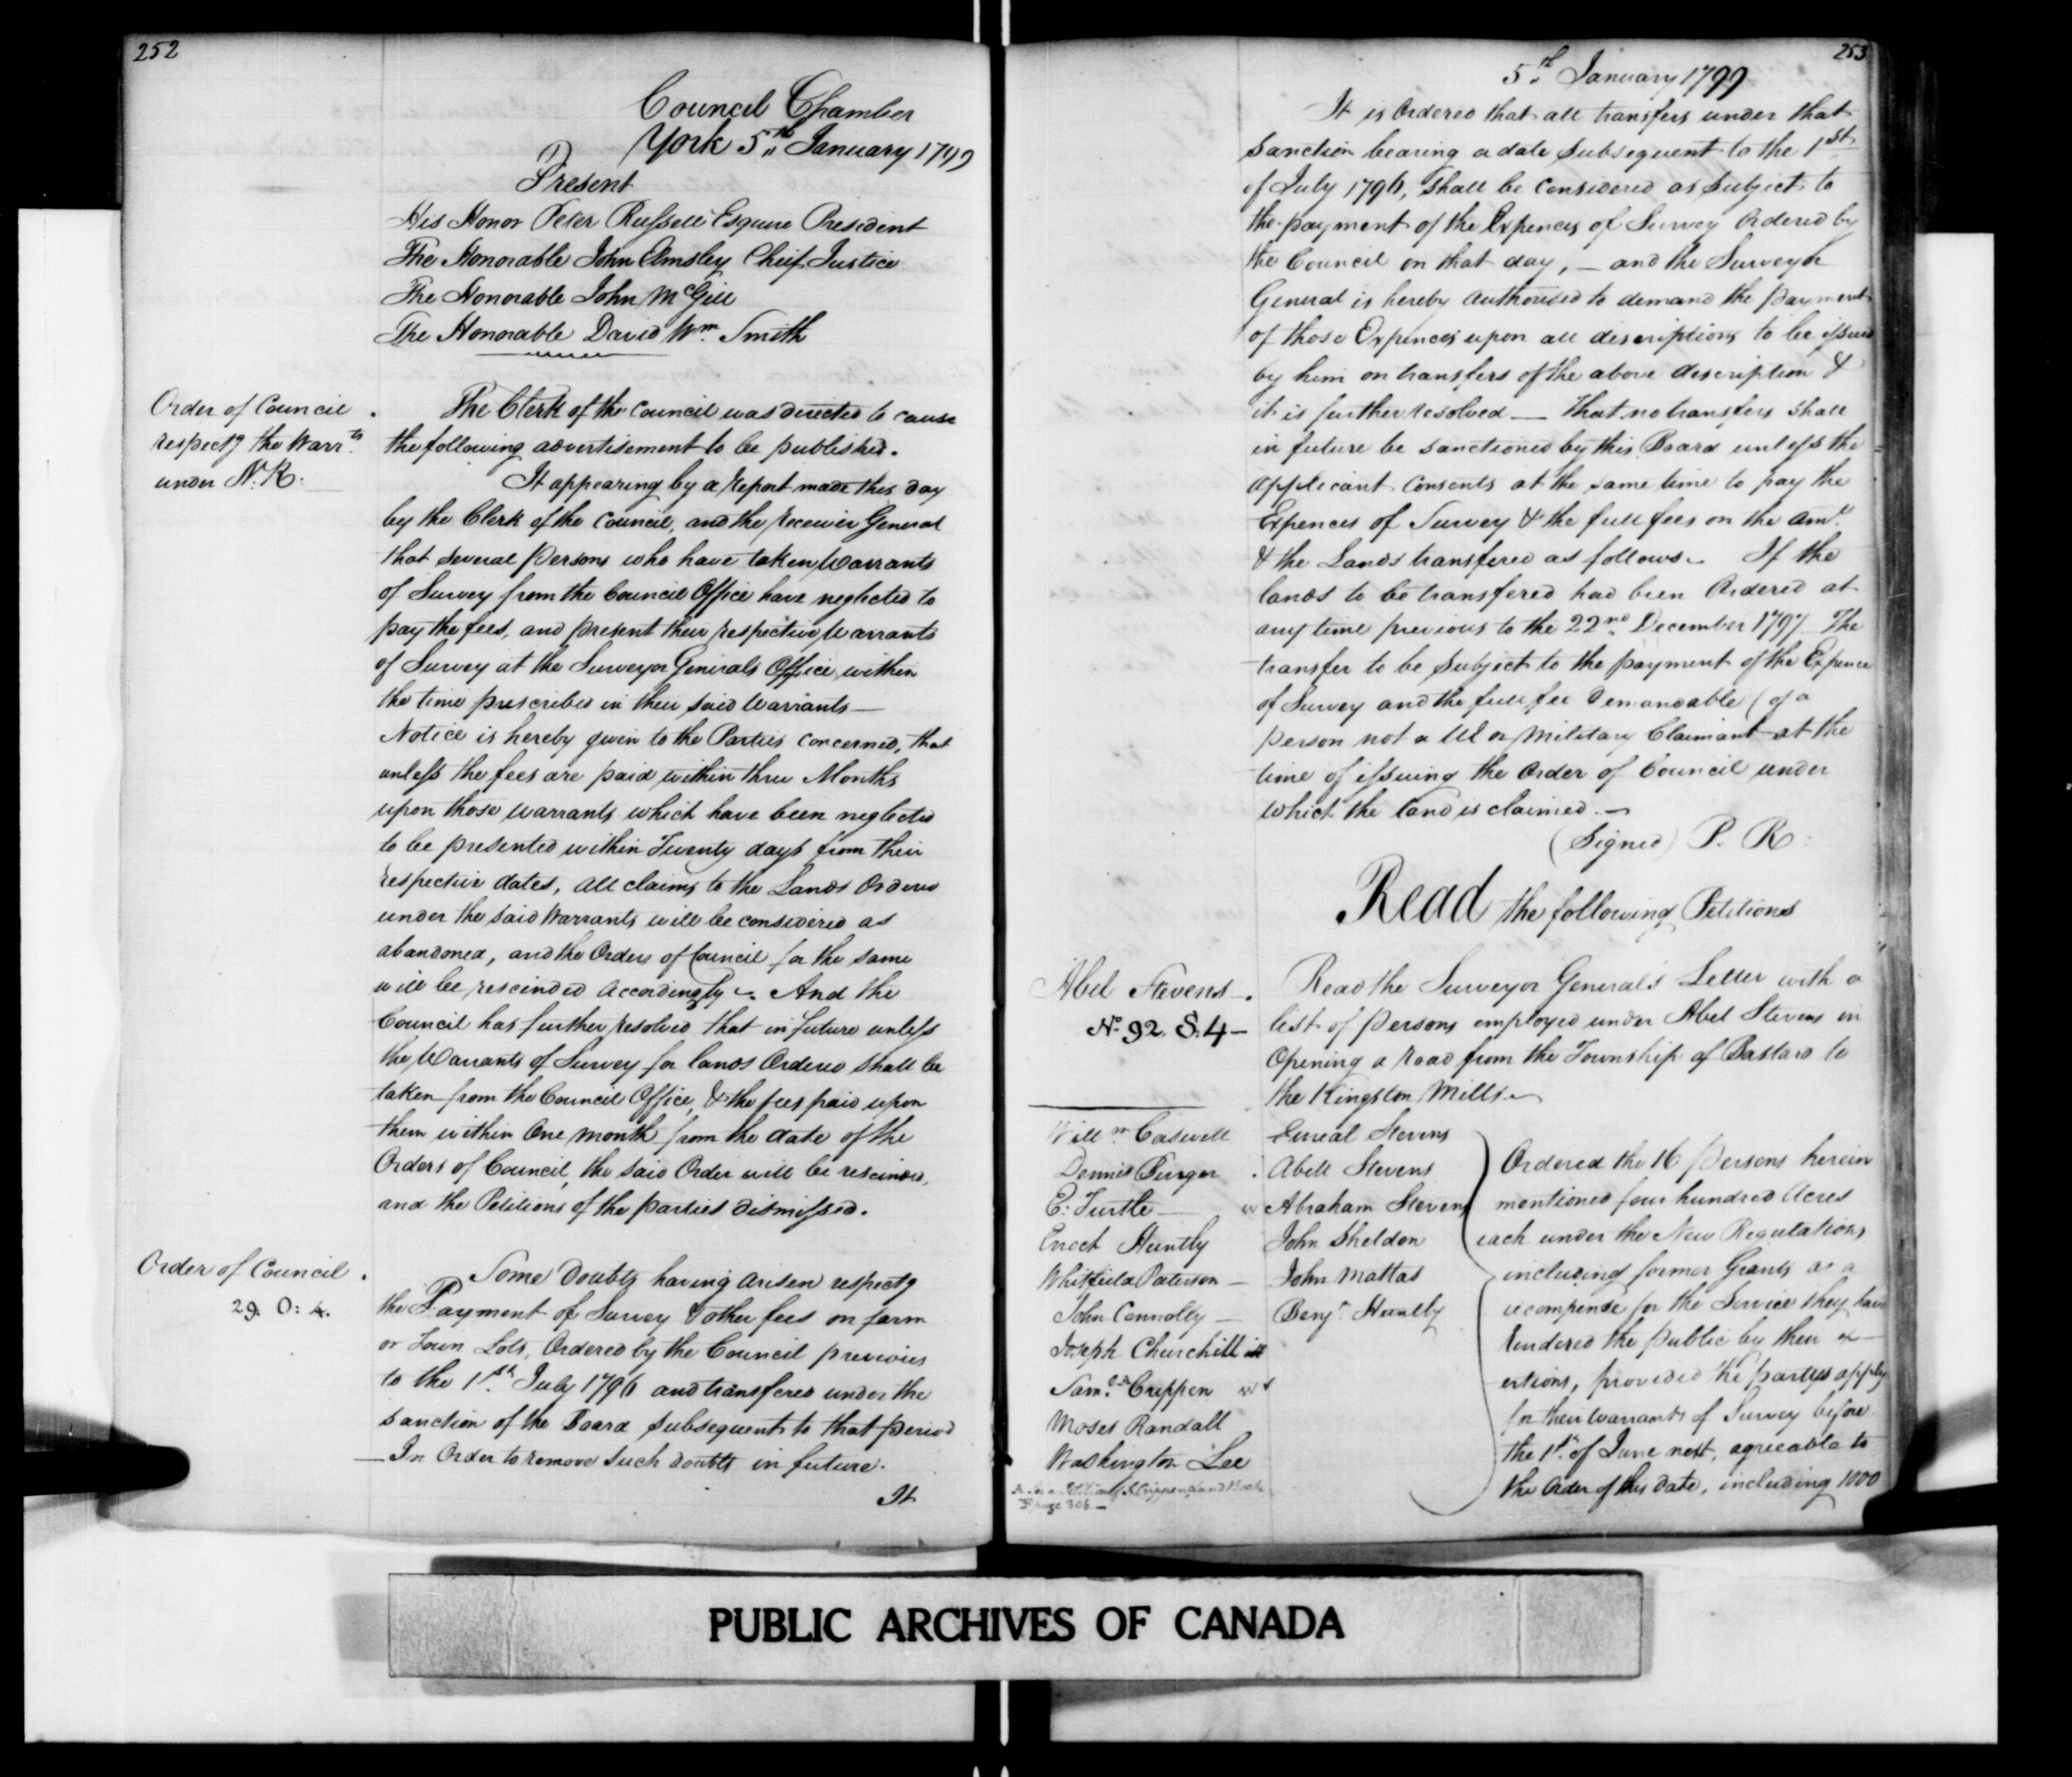 252
Council Chamber
York 5th January 1799
Present
His Honor Peter Russell Esquire President
The Honorable John Elmsley Cheif Justice
The Honorable John McGill
The Honorable David Wm. Smith
Order of Council
respectg the Warrts
under N. R.
The Clerk of the Council was directed to cause
the following advertisement to be published.
It appearing by a report made this day
by the Clerk of the Council, and the Receiver General
that several Persons who have taken Warrants
of Survey from the Council Office have neglected to
pay the fees, and present their respective Warrants
of Survey at the Surveyor Generals Office within
the time prescribed in their said Warrants —
Notice is hereby given to the Parties concerned, that
unless the fees are paid within three Months
upon those warrants which have been neglected
to be presented within Twenty days from their
respective dates, all claims to the Lands Ordered
under the said Warrants will be considered as
abandoned, and the Orders of Council for the same
will be rescinded accordingly. And the
Council has further resolved that in future unless
the Warrants of Survey for lands Ordered shall be
taken from the Council Office, & the fees paid upon
them within One month from the date of the
Orders of Council, the said Order will be rescinded,
and the Petitions of the parties dismissed.
Order of Council
29. O: 4.
Some Doubts having arisen respectg
the Payment of Survey & other fees on farm
or Town Lots, Ordered by the Council previous
to the 1st. July 1796 and transfered under the
sanction of the Board subsequent to that period
— In Order to remove such doubts in future.
It
253
5th January 1799
It is Ordered that all transfers under that
sanction bearing a date subsequent to the 1st
of July 1796, shall be considered as subject to
the payment of the Expences of Survey Ordered by
the Council on that day, — and the Surveyor
General is hereby authorised to demand the payment
of those Expences upon all descriptions to be issued
by him on transfers of the above description &
it is further resolved — That no transfers shall
in future be sanctioned by this Board unless the
applicant consents at the same time to pay the
Expences of Survey & the full fees on the Amt.
& the Lands transfered as follows. If the
lands to be transfered had been Ordered at
any time previous to the 22nd. December 1797 The
transfer to be subject to the payment of the Expence
of Survey and the full fee demandable (of a
person not a UE or Military Claimant at the
time of issuing the Order of Council under
which the land is claimed. —
(Signed) P. R.
Read the following Petitions
Abel Stevens.
No. 92. S. 4 —
Read the Surveyor General's Letter with a
list of persons employed under Abel Stevens in
Opening a road from the Township of Bastard to
the Kingston Mills.
Willm. Caswell
Dennis Burger
E: Turtle
Enoch Huntly
Whitfield Paterson —
John Connolly —
Joseph Churchill
Saml. Crippen
Moses Randall
Washington Lee
Page 306 —
Stevens
Abell Stevens
Abraham Stevens
John Sheldon
John Mattas
Benjn. Huntly
Ordered the 16 persons herein
mentioned four hundred Acres
each under the New Regulations
including former Grants as a
recompense for the Service they have
rendered the public by their ex-
ertions, provided the partys apply
for their Warrants of Survey before
the 1st. of June next, agreeable to
the Order of this date, including 1000
PUBLIC ARCHIVES OF CANADA